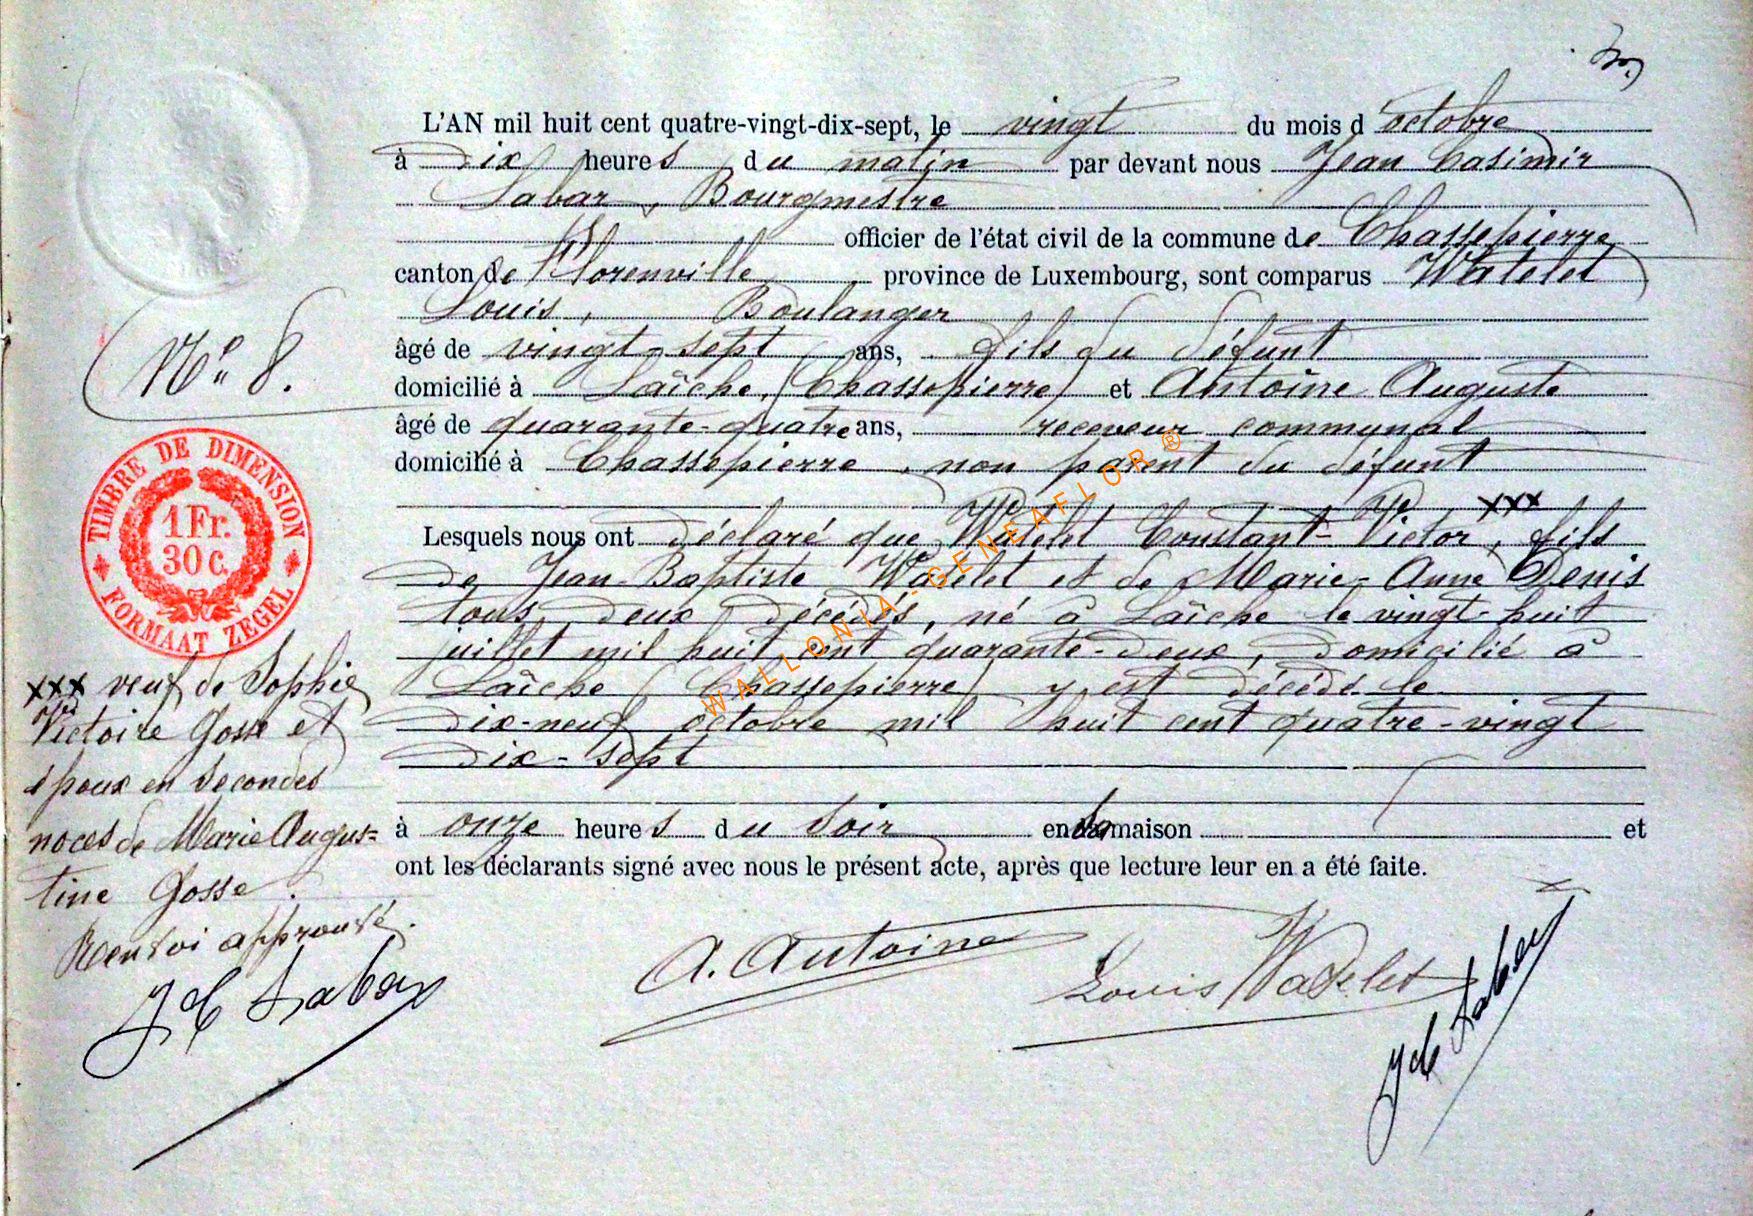 L'AN mil huit cent quatre-vingt-dix-sept, le vingt du mois d'octobre
à dix heures du matin par devant nous Jean Casimir
Labar, Bourgmestre
officier de l'état civil de la commune de Chassepierre
canton de Florenville province de Luxembourg, sont comparus Watelet
Louis, Boulanger
âgé de vingt-sept ans, fils du défunt
domicilié à Laîche, (Chassepierre) et Antoine Auguste
âgé de quarante-quatre ans, receveur communal
domicilié à Chassepierre, non parent du défunt
Lesquels nous ont déclaré que Watelet Constant-Victor, xxx fils
de Jean-Baptiste Watelet et de Marie-Anne Denis
tous deux décédés, né à Laîche le vingt-huit
juillet mil huit cent quarante-deux, domicilié à
Laîche (Chassepierre) y est décédé le
dix-neuf octobre mil huit cent quatre-vingt
dix-sept
à onze heures du soir en sa maison et
ont les déclarants signé avec nous le présent acte, après que lecture leur en a été faite.
A. Antoine
Louis Watelet
J C Labar
No 8.
TIMBRE DE DIMENSION
1 Fr.
30 C.
FORMAAT ZEGEL
xxx veuf de Sophie
Victoire Gosse et
époux en secondes
noces de Marie Augus=
tine Gosse.
Renvoi approuvé.
J C Labar
WALLONIA-GENEAFLOR®